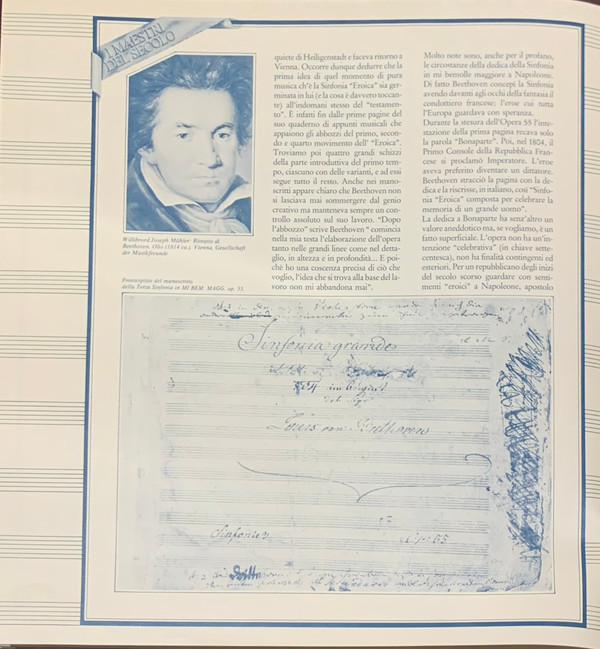 I MAESTRI
DEL SECOLO
Willibrord Joseph Mähler: Ritratto di
Beethoven. Olio (1814 ca.). Vienna, Gesellschaft
der Musikfreunde
Frontespizio del manoscritto
della Terza Sinfonia in MI BEM. MAGG. op. 55.
quiete di Heiligenstadt e faceva ritorno a
Vienna. Occorre dunque dedurre che la
prima idea di quel momento di pura
musica ch'è la Sinfonia "Eroica" sia ger-
minata in lui (e la cosa è davvero toccan-
te) all'indomani stesso del "testamen-
to". È infatti fin dalle prime pagine del
suo quaderno di appunti musicali che
appaiono gli abbozzi del primo, secon-
do e quarto movimento dell' "Eroica".
Troviamo poi quattro grandi schizzi
della parte introduttiva del primo tem-
po, ciascuno con delle varianti, e ad essi
segue tutto il resto. Anche nei mano-
scritti appare chiaro che Beethoven non
si lasciava mai sommergere dal genio
creativo ma manteneva sempre un con-
trollo assoluto sul suo lavoro. "Dopo
l'abbozzo" scrive Beethoven " comincia
nella mia testa l'elaborazione dell'opera
tanto nelle grandi linee come nel detta-
glio, in altezza e in profondità... E poi-
chè ho una coscenza precisa di ciò che
voglio, l'idea che si trova alla base del la-
voro non mi abbandona mai".
Molto note sono, anche per il profano,
le circostanze della dedica della Sinfonia
in mi bemolle maggiore a Napoleone.
Di fatto Beethoven concepì la Sinfonia
avendo davanti agli occhi della fantasia il
condottiero francese: l'eroe cui tutta
l'Europa guardava con speranza.
Durante la stesura dell'Opera 55 l'inte-
stazione della prima pagina recava solo
la parola "Bonaparte". Poi, nel 1804, il
Primo Console della Repubblica Fran-
cese si proclamò Imperatore. L'eroe
aveva preferito diventare un dittatore.
Beethoven stracciò la pagina con la de-
dica e la riscrisse, in italiano, così "Sinfo-
nia "Eroica" composta per celebrare la
memoria di un grande uomo".
La dedica a Bonaparte ha senz'altro un
valore aneddotico ma, se vogliamo, è un
fatto superficiale. L'opera non ha un'in-
tenzione "celebrativa" (in chiave sette-
centesca), non ha finalità contingenti ed
esteriori. Per un repubblicano degli inizi
del secolo scorso guardare con senti-
menti "eroici" a Napoleone, apostolo
Sinfonia grande
Louis van Beethoven
Sinfonie
Dritte